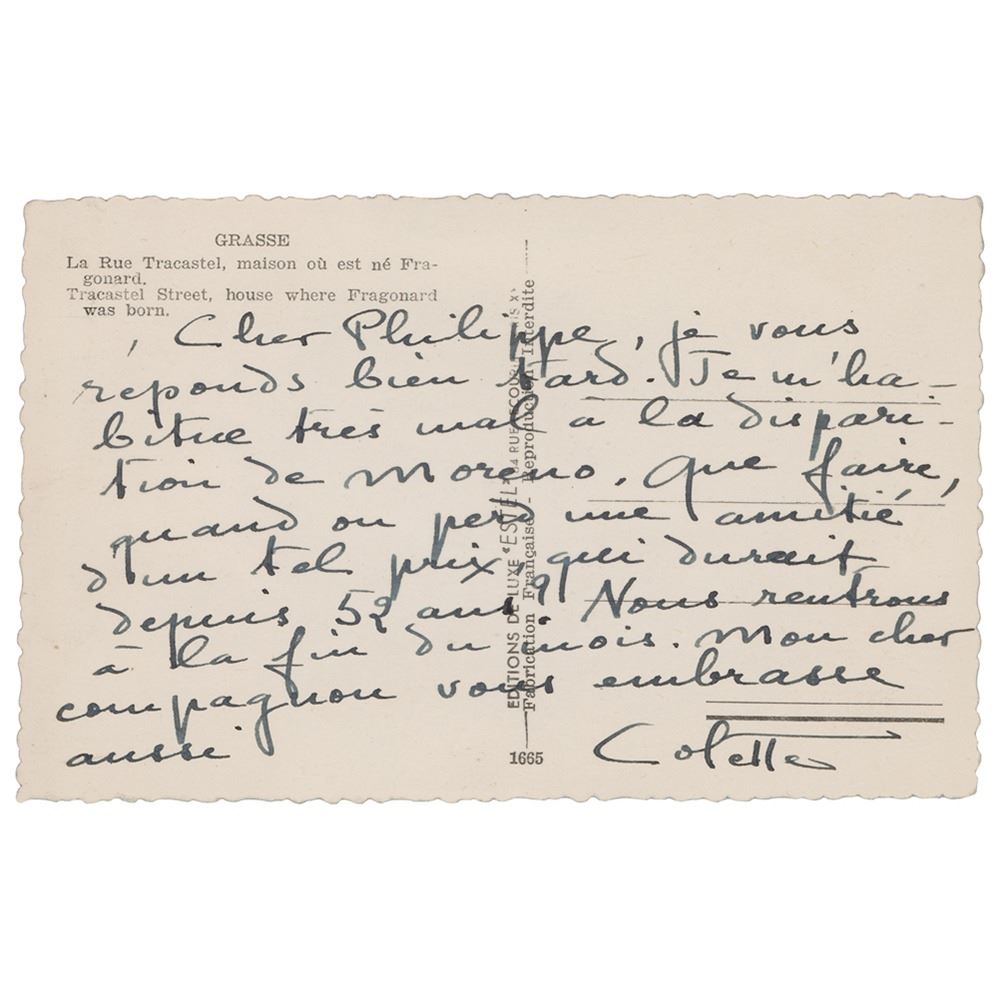 GRASSE
La Rue Tracastel, maison où est né Fra-
gonard.
Tracastel Street, house where Fragonard
was born.
Cher Philippe, je vous
réponds bien tard. Je m'ha-
bitue très mal à la dispari-
tion de Moreno. Que faire,
quand on perd une amitié
d'un tel prix, qui durait
depuis 52 ans ? Nous rentrons
à la fin du mois. Mon cher
compagnon vous embrasse
aussi
Colette
EDITIONS DE LUXE "ESTEL" RUE
Fabrication Française - Reproduction Interdite
1665